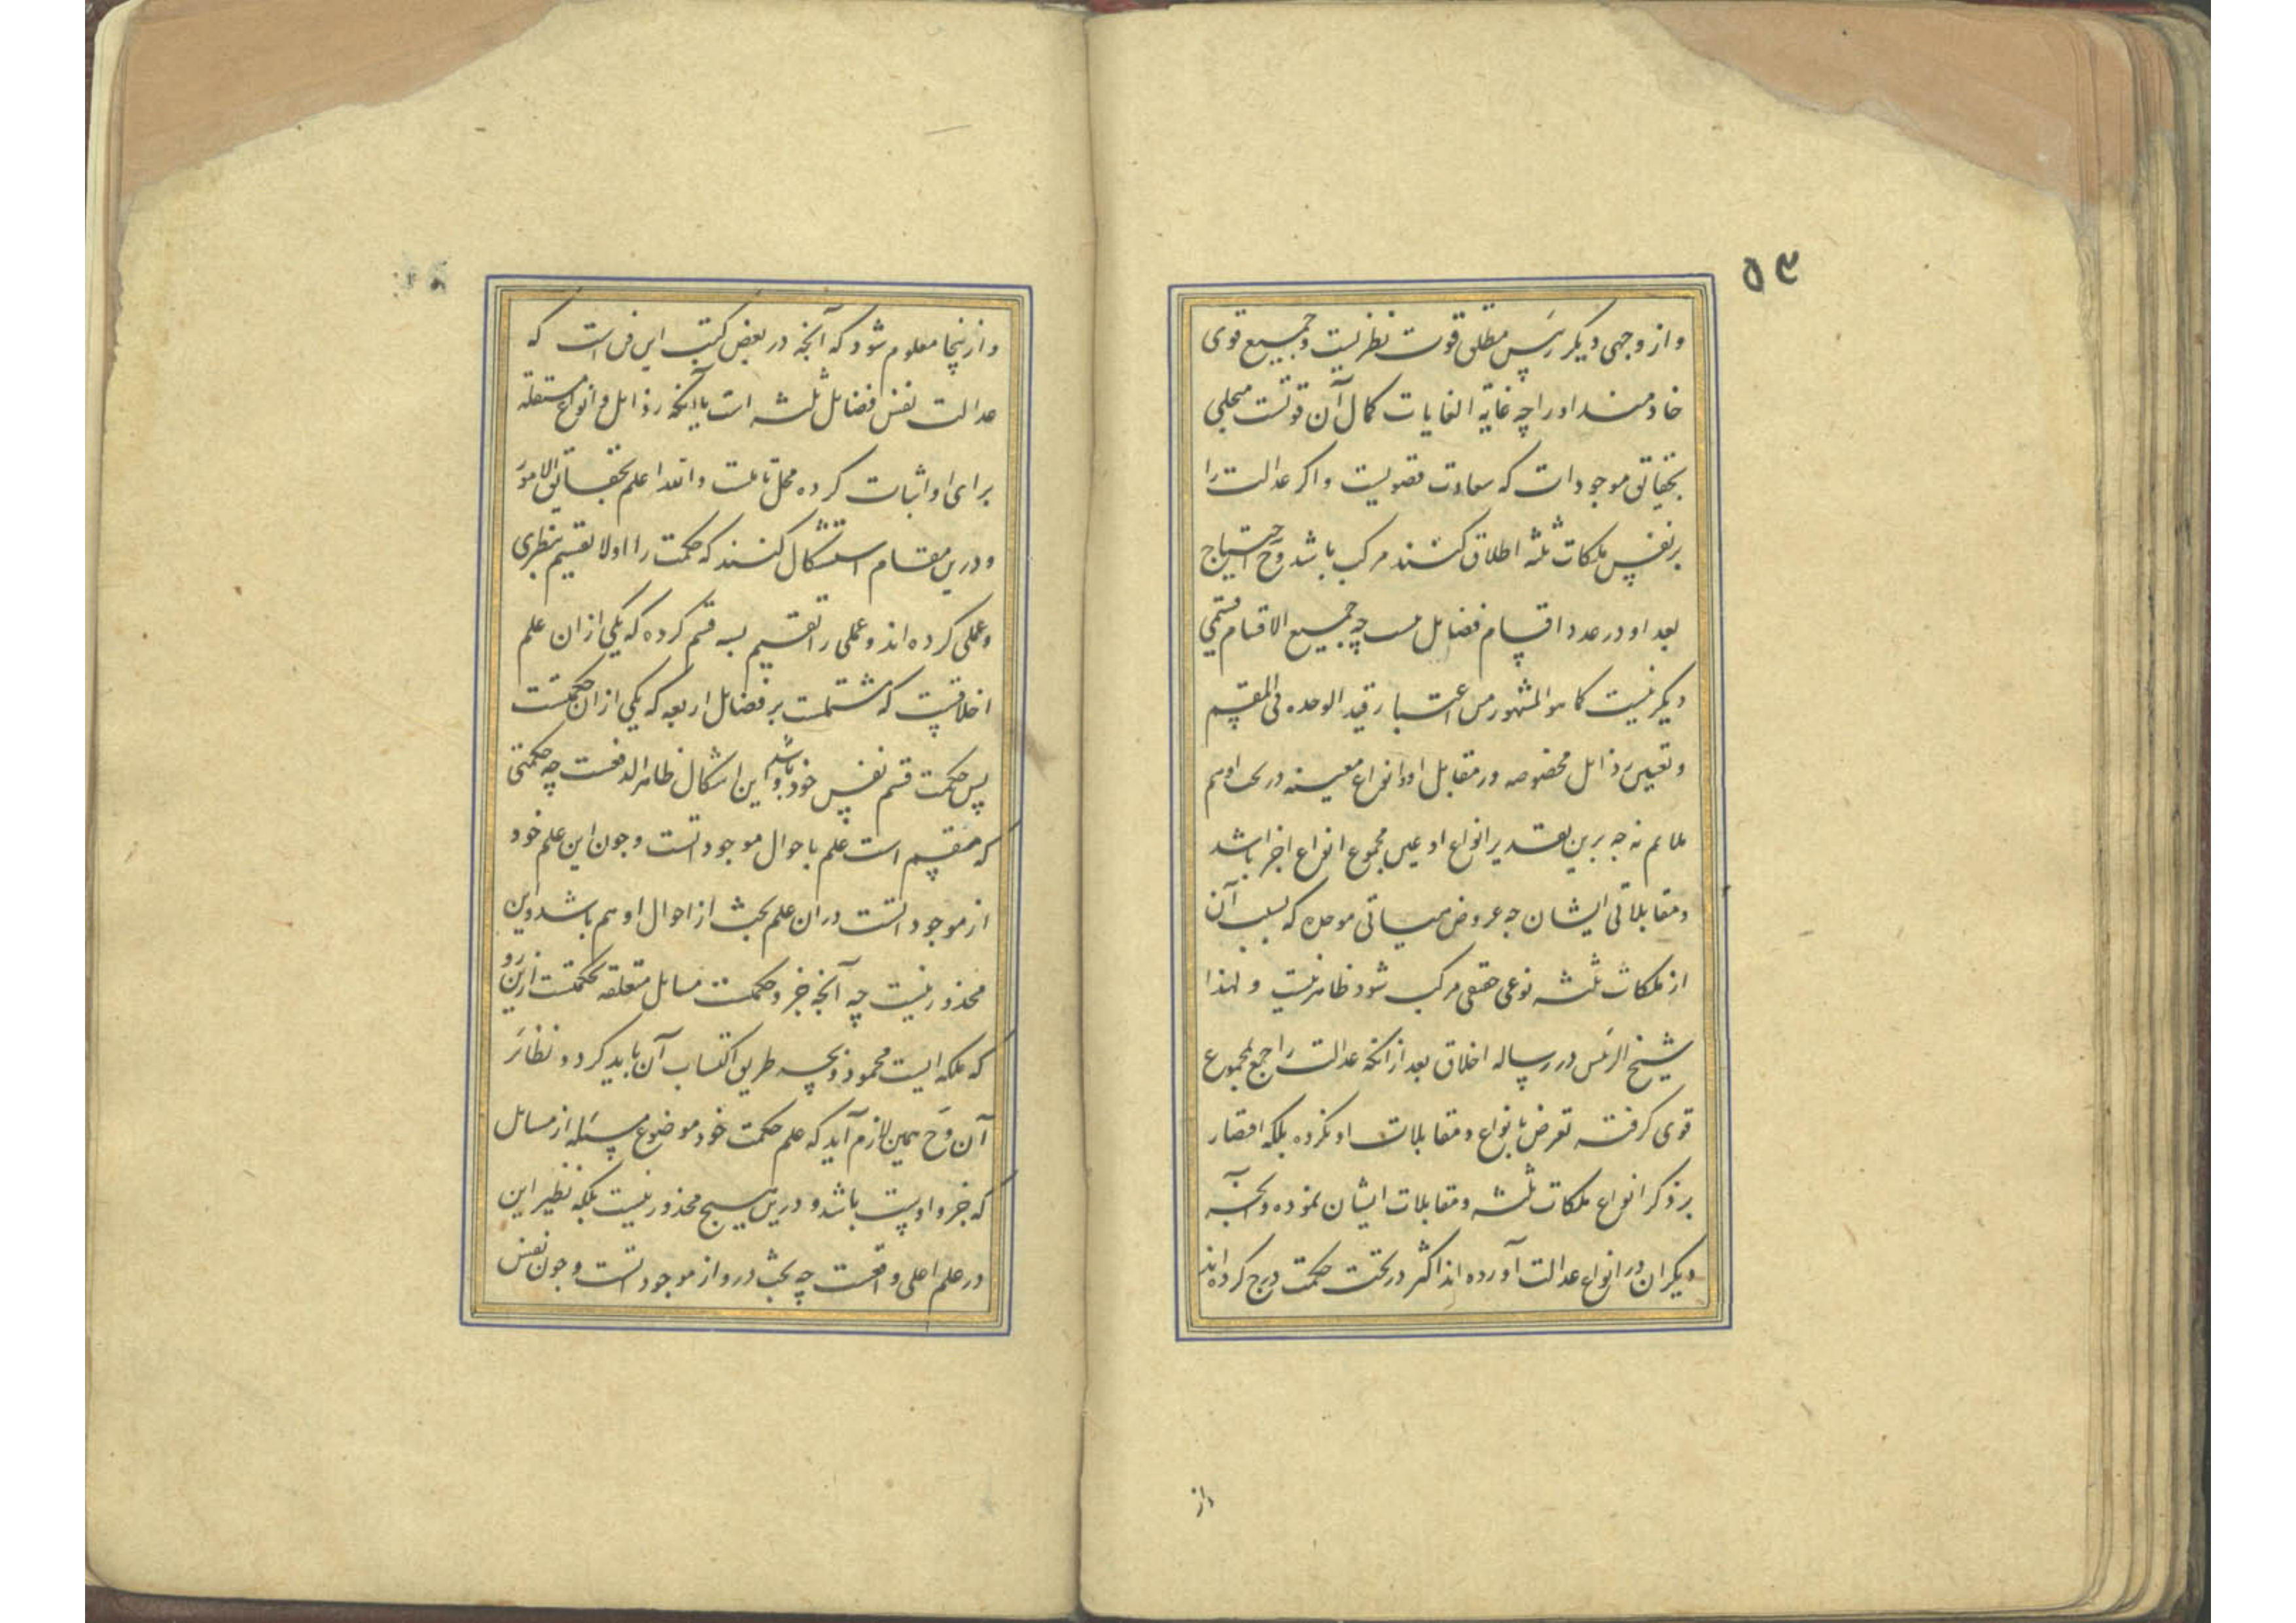 ۵۳
و از وجهی دیکر رئیس مطلق قوت نظریست و جمیع قوی
خادمند اورا چه غایة الغایات کمال آن قوتست متحلی
بحقایق موجودات که سعادت قصویست و اکر عدالت را
بر نفس ملکات ثلثه اطلاق کنند مرکب باشد وح احتیاج
بعد او در عدد اقسام فضایل نیست چه جمیع الاقسام قسمی
دیکر نیست کما هو المشهور من اعتبار قید الوحده فی المقسم
و تعیین رذایل مخصوصه در مقابل او و انواع معینه در تحت او هم
ملایم نه چه برین تقدیر انواع او عین مجموع انواع اجزا باشد
و مقابلاتی ایشان چه عروض هیاتی موحده که بسبب آن
از ملکات ثلثه نوعی حقیقی مرکب شود ظاهر نیست و لهذا
شیخ الرئیس در رساله اخلاق بعد از انکه عدالت راجع بمجموع
قوی کرفته تعرض بانواع و مقابلات او نکرده بلکه اقتصار
بر ذکر انواع ملکات ثلثه و مقابلات ایشان نموده و آنچه
دیکران در انواع عدالت آورده اند اکثر در تحت حکمت درج کرده اند
و از
و ازینجا معلوم شود که آنچه در بعض کتب این فن است که
عدالت نفس فضایل ثلثه است با آنکه رذایل و انواع مستقله
برای او اثبات کرده محل تاملست و الله اعلم بحقایق الامور
و درین مقام استشکال کنند که حکمت را اولا تقسیم بنظری
و عملی کرده اند و عملی را تقسیم بسه قسم کرده که یکی از ان علم
اخلاقیست که مشتملست بر فضایل اربعه که یکی از ان حکمتست
پس حکمت قسم نفس خود باشد و این اشکال ظاهر الدفعست چه حکمتی
که مقسم است علم باحوال موجوداتست و جون این علم خود
از موجوداتست در ان علم بحث از احوال او هم باشد و این
محذور نیست چه آنچه جزو حکمت مسایل متعلقه بحکمتست ازین رو
که ملکه ایست محمود و بچه طریق اکتساب آن باید کرد و نظائر
آن وح همین لازم آید که علم حکمت خود موضوع مسئله از مسایل
که جزو اوست باشد و درین هیچ محذور نیست بلکه نظیر این
در علم اعلی واقعست چه بحث درو از موجوداتست و جون نفس